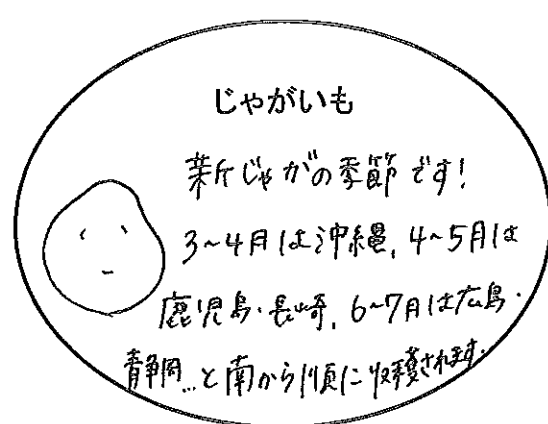 じゃがいも
新じゃがの季節です!
3~4月は沖縄、4~5月は
鹿児島・長崎、6~7月は広島・
静岡…と南から順に収穫されます。